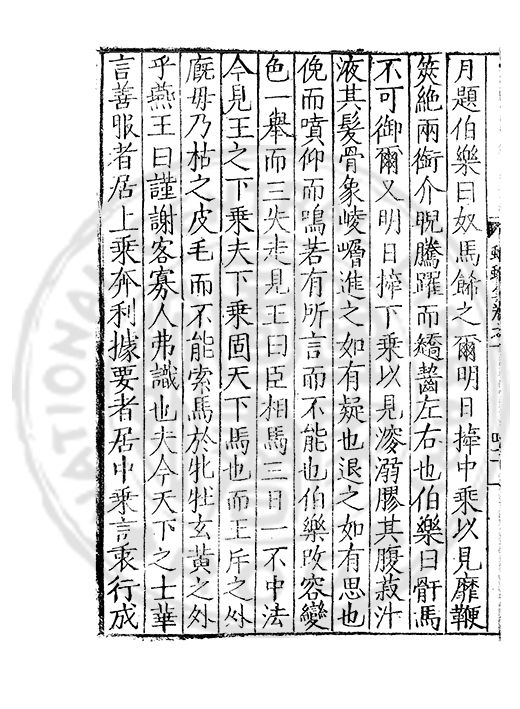 月題伯樂曰奴馬餙之爾明日捽中乘以見靡鞭
筴絶兩銜介睨騰躍而齧左右也伯樂曰馬
不可御爾又明日捽下乘以見溲溺膠其腹菽汁
液其髮骨象崚嶒進之如有疑也退之如有思也
俛而噴仰而鳴若有所言而不能也伯樂攺容變
色一舉而三失走見王曰臣相馬三日一不中法
今見王之下乘夫下乘固天下馬也而王斥之外
廐毋乃枯之皮毛而不能索馬於牝牡玄黃之外
乎燕王曰謹謝客寡人弗識也夫今天下之士華
言善服者居上乘奔利據要者居中乘言衷行成